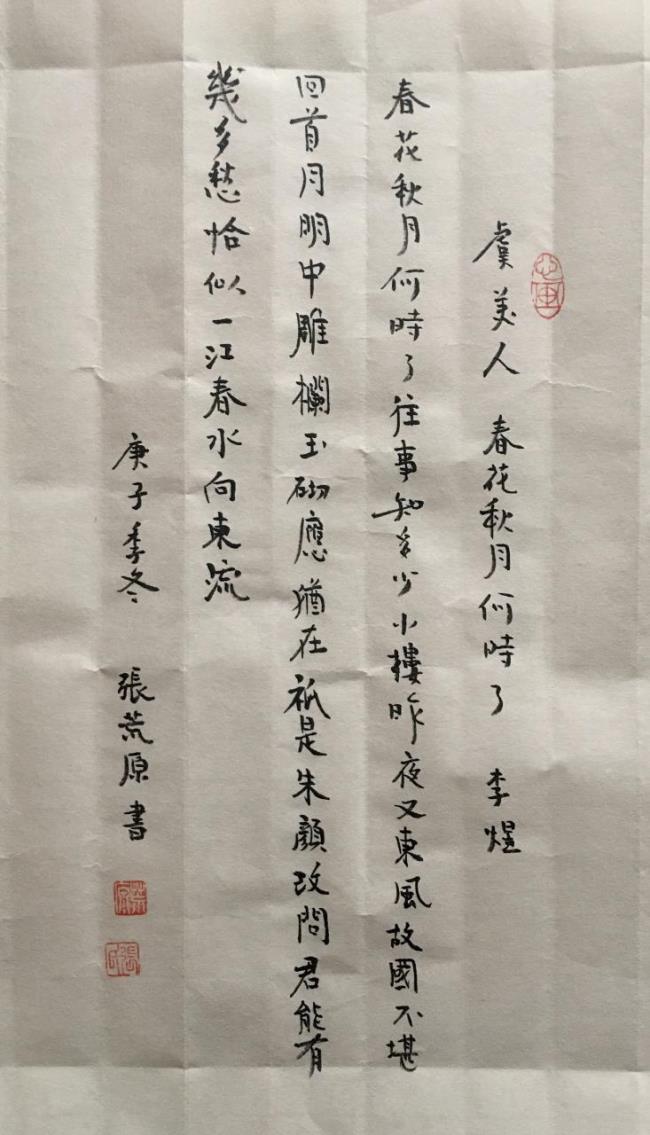 虞美人 春花秋月何時了 李煜
春花秋月何時了往事知多少小樓昨夜又東風故國不堪
回首月明中雕欄玉砌應猶在祇是朱顏改問君能有
幾多愁恰似一江春水向東流
庚子季冬 張荒原書